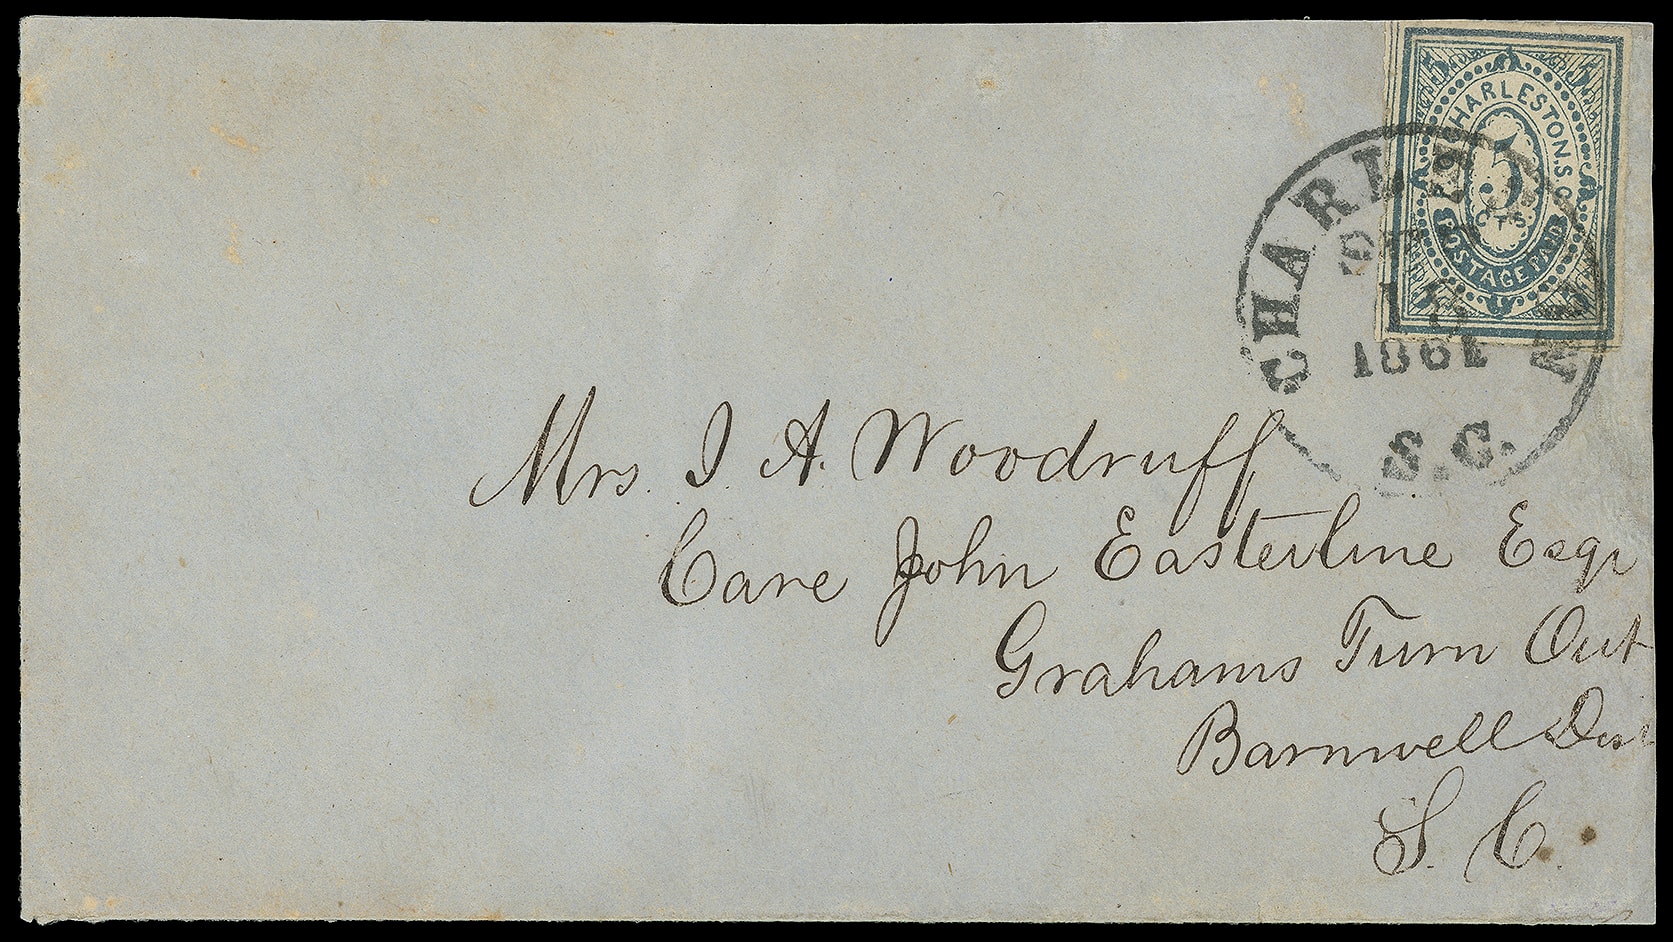 5 5
CHARLESTON. S.C.
5
CTS
POSTAGE PAID
CHARLESTON
1861
S.C.
Mrs. J A. Woodruff
Care John Easterline Esqr
Grahams Turn Out
Barnwell Dist
S. C.